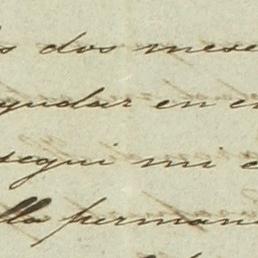 s dos mese
yudar en e
segui mi
lla perman